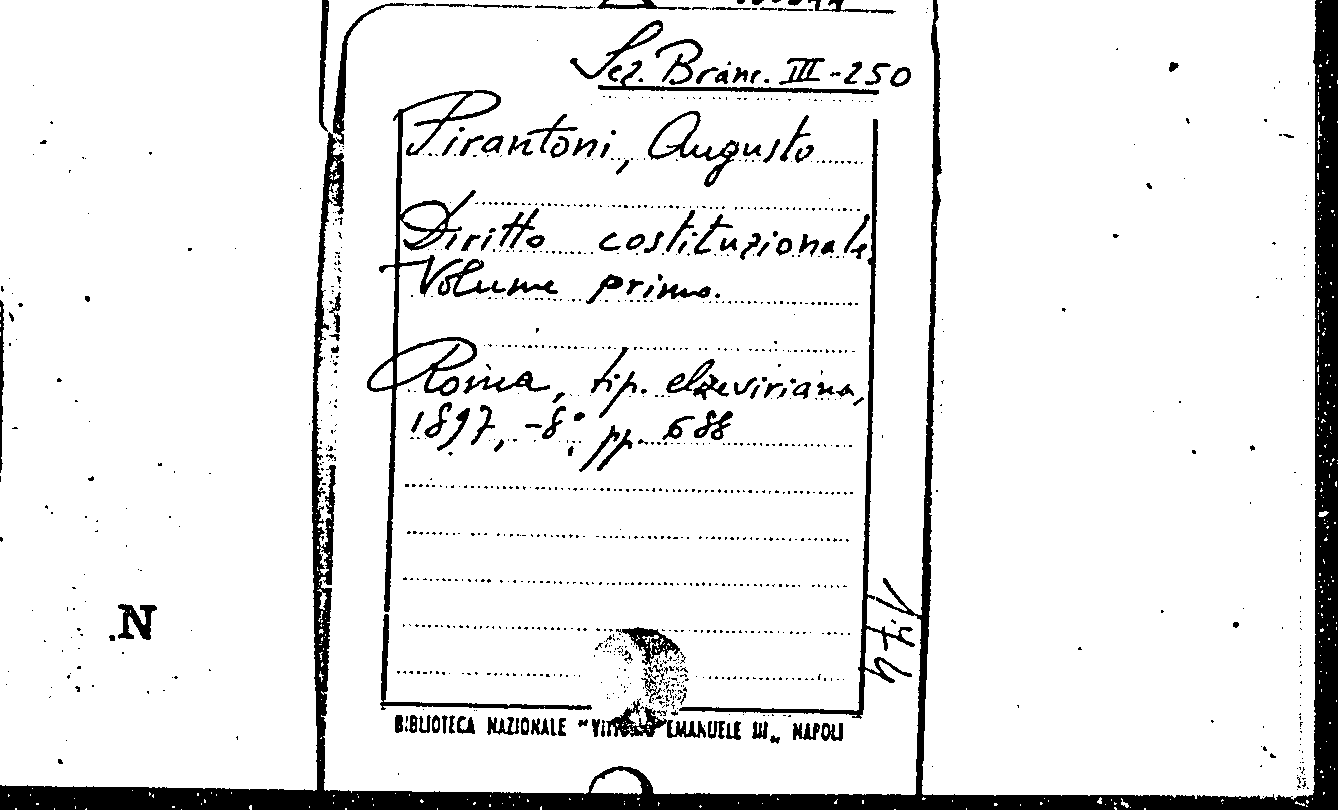 Sez. Branc. III-250
Pirantoni, Augusto
Diritto costituzionale.
Volume primo.
Roma, tip. elzeviriana,
1897, -8°, pp. 688
N
BIBLIOTECA NAZIONALE "VITTORIO EMANUELE III„ NAPOLI